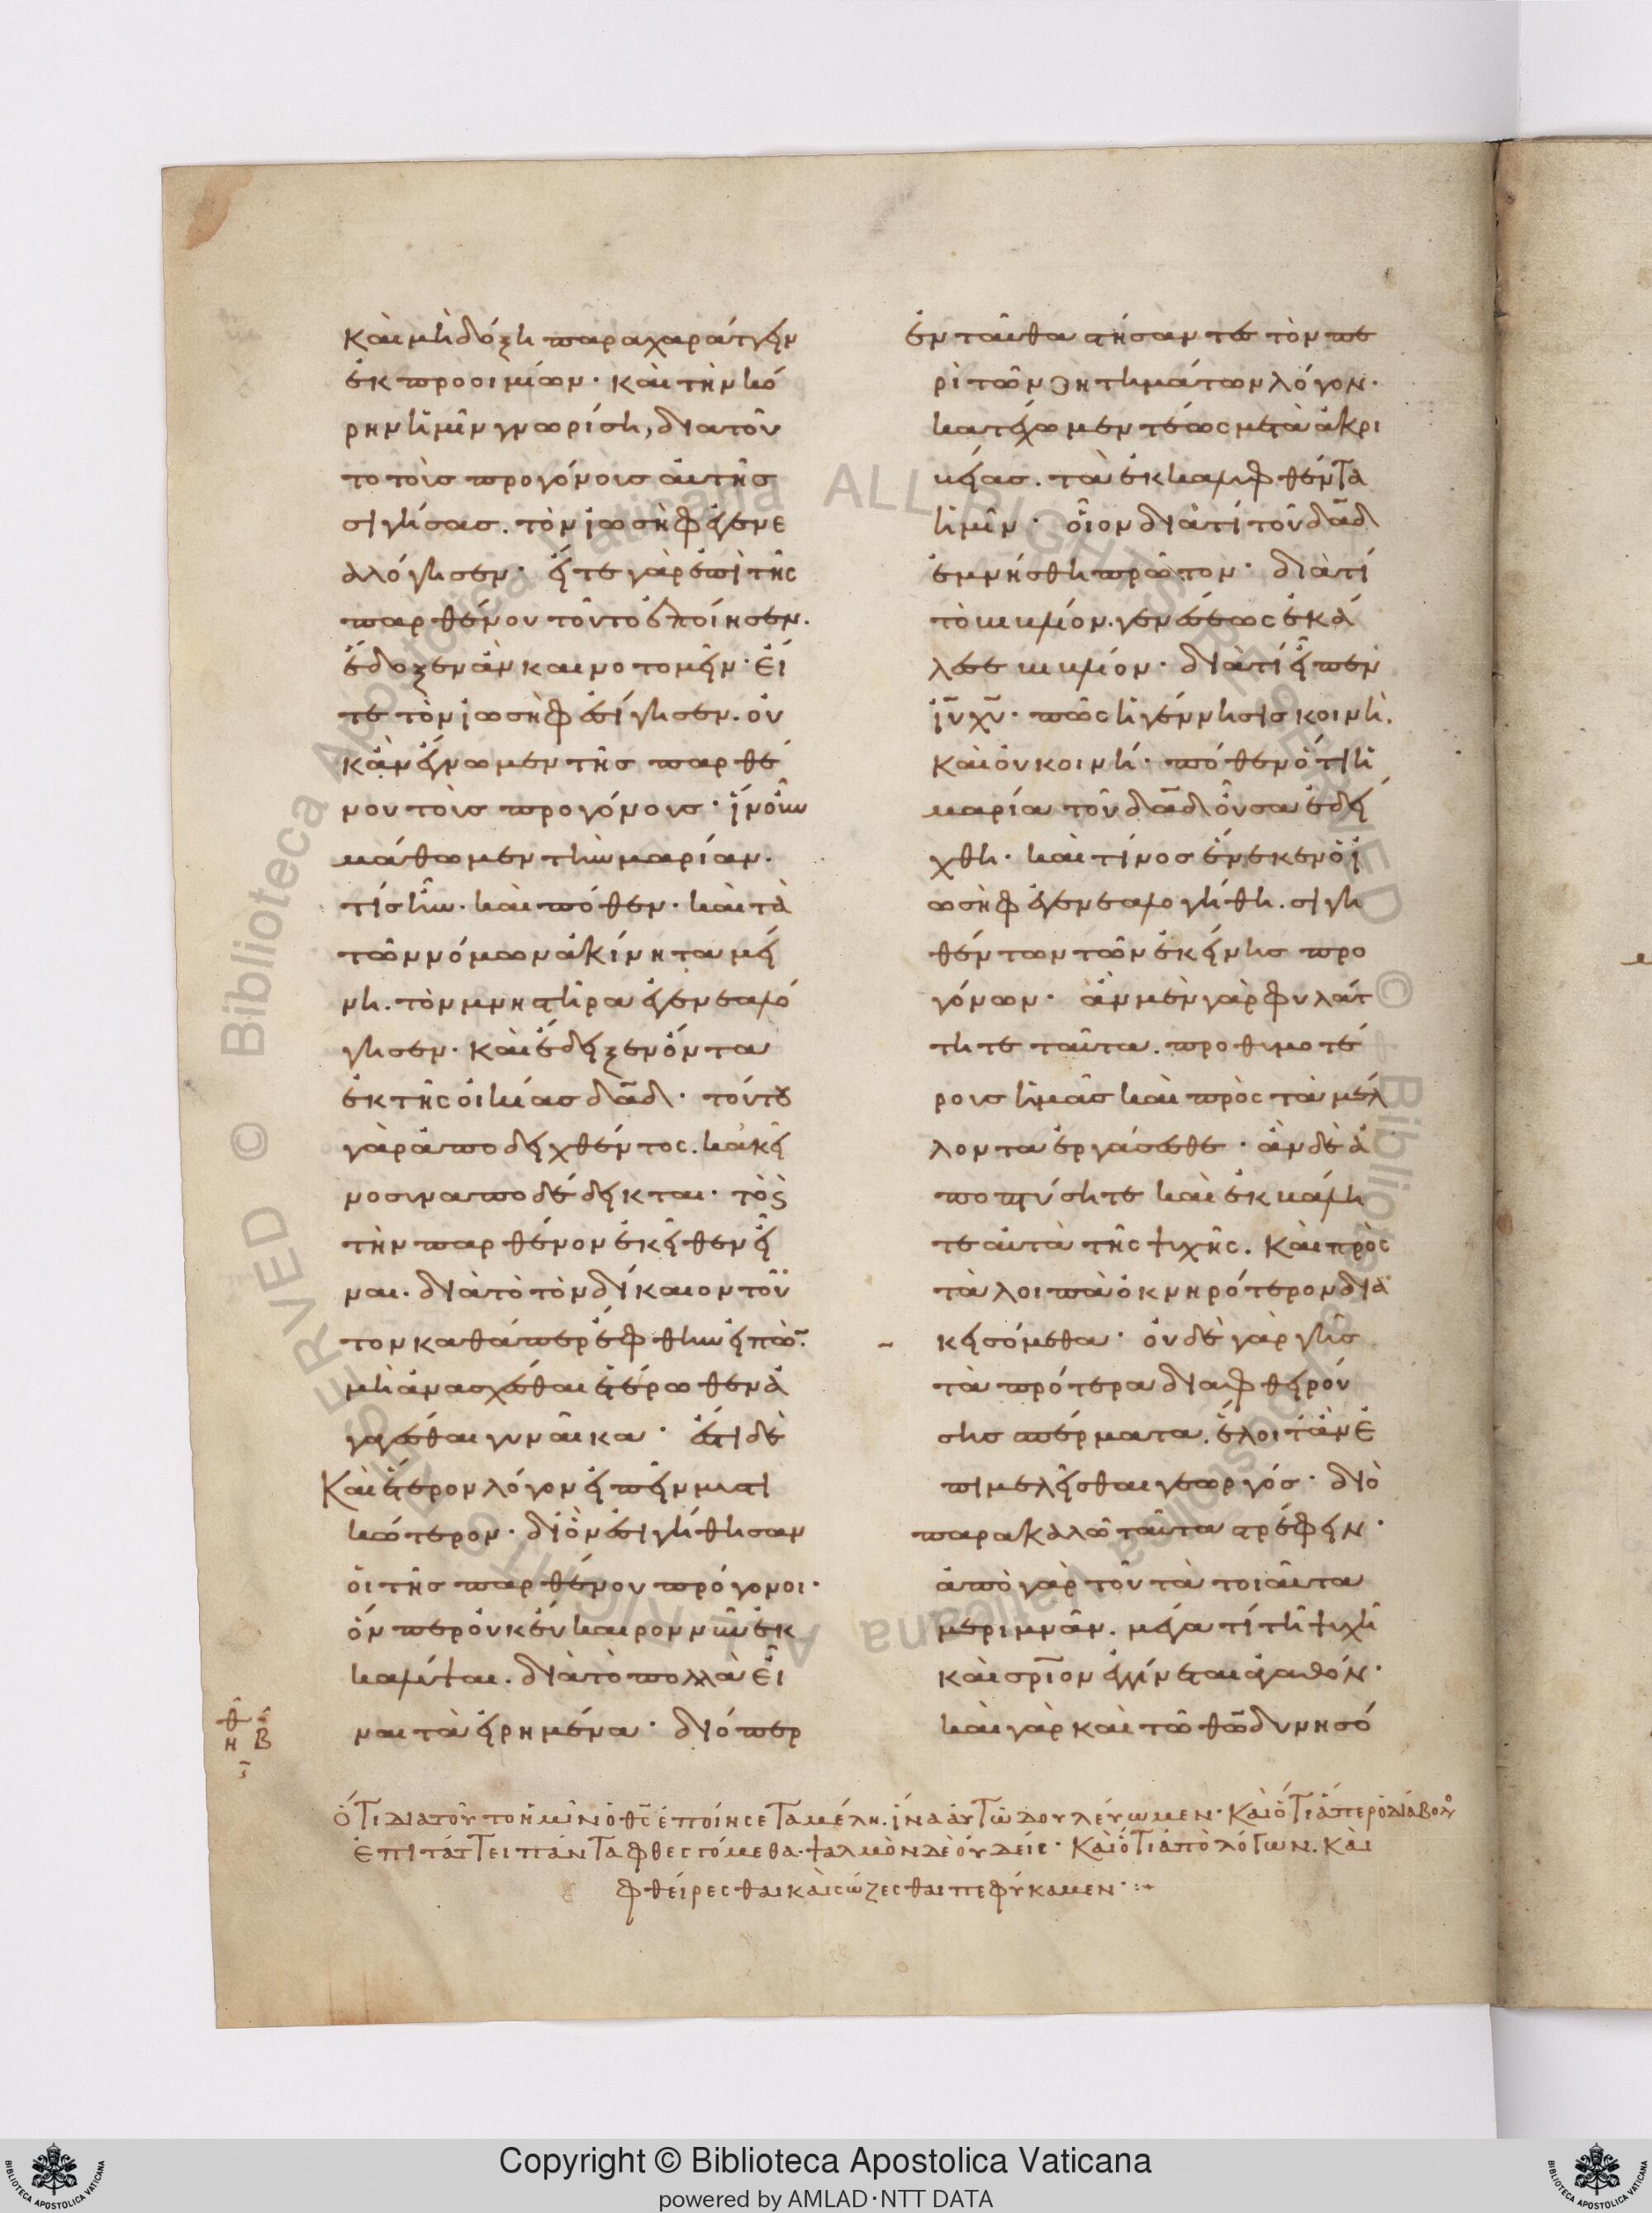 καὶ μὴ δόξη παραχαράττειν
ἐκ προοιμίων· καὶ τὴν κό
ρην ἡμῖν γνωρίση, διατοῦ
το τοὺς προγόνους αὐτῆς
σιγήσας. τὸν ἰωσὴφ ἐγενε
αλόγησεν· εἴτε γὰρ ἐπὶ τῆς
παρθένου τοῦτο ἐποίησεν.
ἔδοξεν ἂν καινοτομεῖν· εἴ
τε τὸν ἰωσὴφ ἐσίγησεν. οὐ
κ ἂν ἔγνωμεν τῆς παρθέ
νου τοὺς προγόνους· ἵν οὖν
μάθωμεν τὴν μαρίαν.
τίς ἦν. καὶ πόθεν. καὶ τὰ
τῶν νόμων ἀκίνητα μέ
νη. τὸν μνηστῆρα ἐγενεαλό
γησεν· καὶ ἔδειξεν ὄντα
ἐκ τῆς οἰκίας δᾱδ· τούτου
γὰρ ἀποδειχθέντος. κἀκεῖ
νο συναποδέδεικται· τὸ ϛ
τὴν παρθένον ἐκεῖθεν εἶ
ναι. διὰ τὸ τὸν δίκαιον τοῦ
τον καθάπερ ἔφθην εἰπὼ̄.
μὴ ἀνασχέσθαι ἑτέρωθεν ἀ
γαγέσθαι γυναῖκα· ἔστι δὲ
καὶ ἕτερον λόγον εἰπεῖν μυστι
κώτερον· δι ὃν ἐσιγήθησαν
οἱ τῆς παρθένου πρόγονοι·
ὅνπερ οὐκ εὔκαιρον νῦν ἐκ
καλύψαι. διὰ τὸ πολλὰ εἶ
ναι τὰ εἰρημένα· διόπερ
ἐνταῦθα στήσαντες τὸν πε
ρὶ τῶν ζητημάτων λόγον.
κατέχωμεν τέως μετὰ ἀκρι
βείας. τὰ ἐκκαλυφθέντα
ἡμῖν· οἷον διὰ τί τοῦ δᾱδ
ἐμνήσθη πρῶτον· διὰ τί
τὸ βιβλίον. γενέσεως ἐκά
λεσε βιβλίον· διὰ τί εἶπεν
ῑῡ χ̄ῡ· πῶς ἡ γέννησις κοινὴ.
καὶ οὐ κοινή· πόθεν ὅτι ἡ
μαρία τοῦ δᾱδ οὖσα ἐδεί
χθη· καὶ τίνος ἕνεκεν ὁ ἰ
ωσὴφ ἐγενεαλογήθη. σιγη
θέντων τῶν ἐκείνης προ
γόνων· ἂν μὲν γὰρ φυλάτ
τητε ταῦτα. προθυμοτέ
ρους ἡμᾶς καὶ πρὸς τὰ μέλ
λοντα ἐργάσεσθε· ἂν δὲ ἀ
ποπτύσητε καὶ ἐκβάλη
τε αὐτὰ τῆς ψυχῆς. καὶ πρὸς
τὰ λοιπὰ ὀκνηρότερον δια
κεισόμεθα· οὐδὲ γὰρ γῆς
τὰ πρότερα διαφθειρού
σης σπέρματα. ἕλοιτ ἂν ἐ
πιμελεῖσθαι γεωργός· διὸ
παρακαλῶ ταῦτα στρέφειν·
ἀπὸ γὰρ τοῦ τὰ τοιαῦτα
μεριμνᾶν. μέγα τί τῆ ψυχῆ
καὶ σρ̄ιον ἐγγίνεται ἀγαθόν·
καὶ γὰρ καὶ τῶ θω̄ δυνησό
ὅτι διατοῦτο ἡμῖν ὁ θς̄ ἐποίησε τα μέλη. ἵνα ἀυτῶ δουλέυωμεν· καὶ ὅτι ἅπερ ὁ διάβολος
ἐπιτάττει πάντα φθεγγόμεθα. ψαλμὸν δὲ οὐδείς· καὶ ὅτι ἀπὸ λόγων. καὶ
φθείρεσθαι καὶ σώζεσθαι πεφύκαμεν·:~